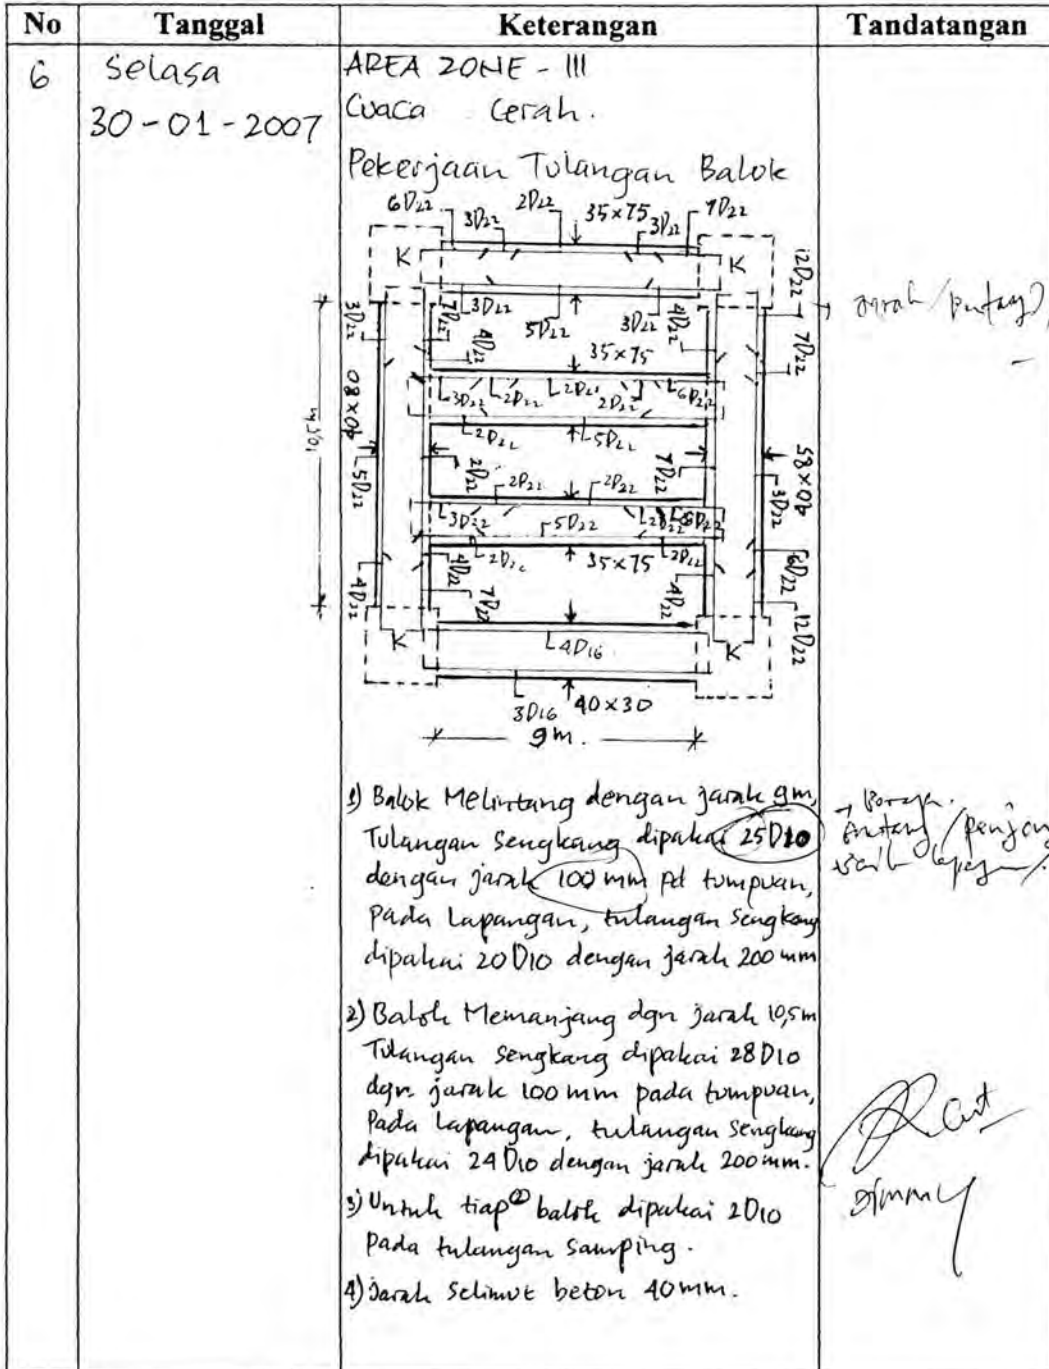 No Tanggal Keterangan Tandatangan
6 Selasa
30-01-2007
AREA ZONE - III
Cuaca Cerah.
Pekerjaan Tulangan Balok
6D22 3D22 2D22 35x75 3D22 7D22
K K
12D22
3D22 7D22 3D22 5D22 3D22 4D22 7D22
4D22 35x75
3D22 2D22 2D22 2D22 6D22
2D22 5D22
5D22 2D22 7D22 3D22
2D22 2D22
3D22 5D22
2D22 35x75 2D22
4D22 4D22 7D22 4D22 6D22 12D22
K K
4D16
3D16 40x30
9m.
1) Balok Melintang dengan jarak 9m,
Tulangan Sengkang dipakai 25D10
dengan jarak 100 mm pd tumpuan,
pada Lapangan, tulangan Sengkang
dipakai 20D10 dengan jarak 200 mm
2) Balok Memanjang dgn jarak 10,5m
Tulangan Sengkang dipakai 28D10
dgn. jarak 100 mm pada tumpuan,
Pada Lapangan, tulangan Sengkang
dipakai 24D10 dengan jarak 200 mm.
3) Untuk tiap(2) balok dipakai 2D10
pada tulangan samping.
4) Jarak Selimut beton 40 mm.